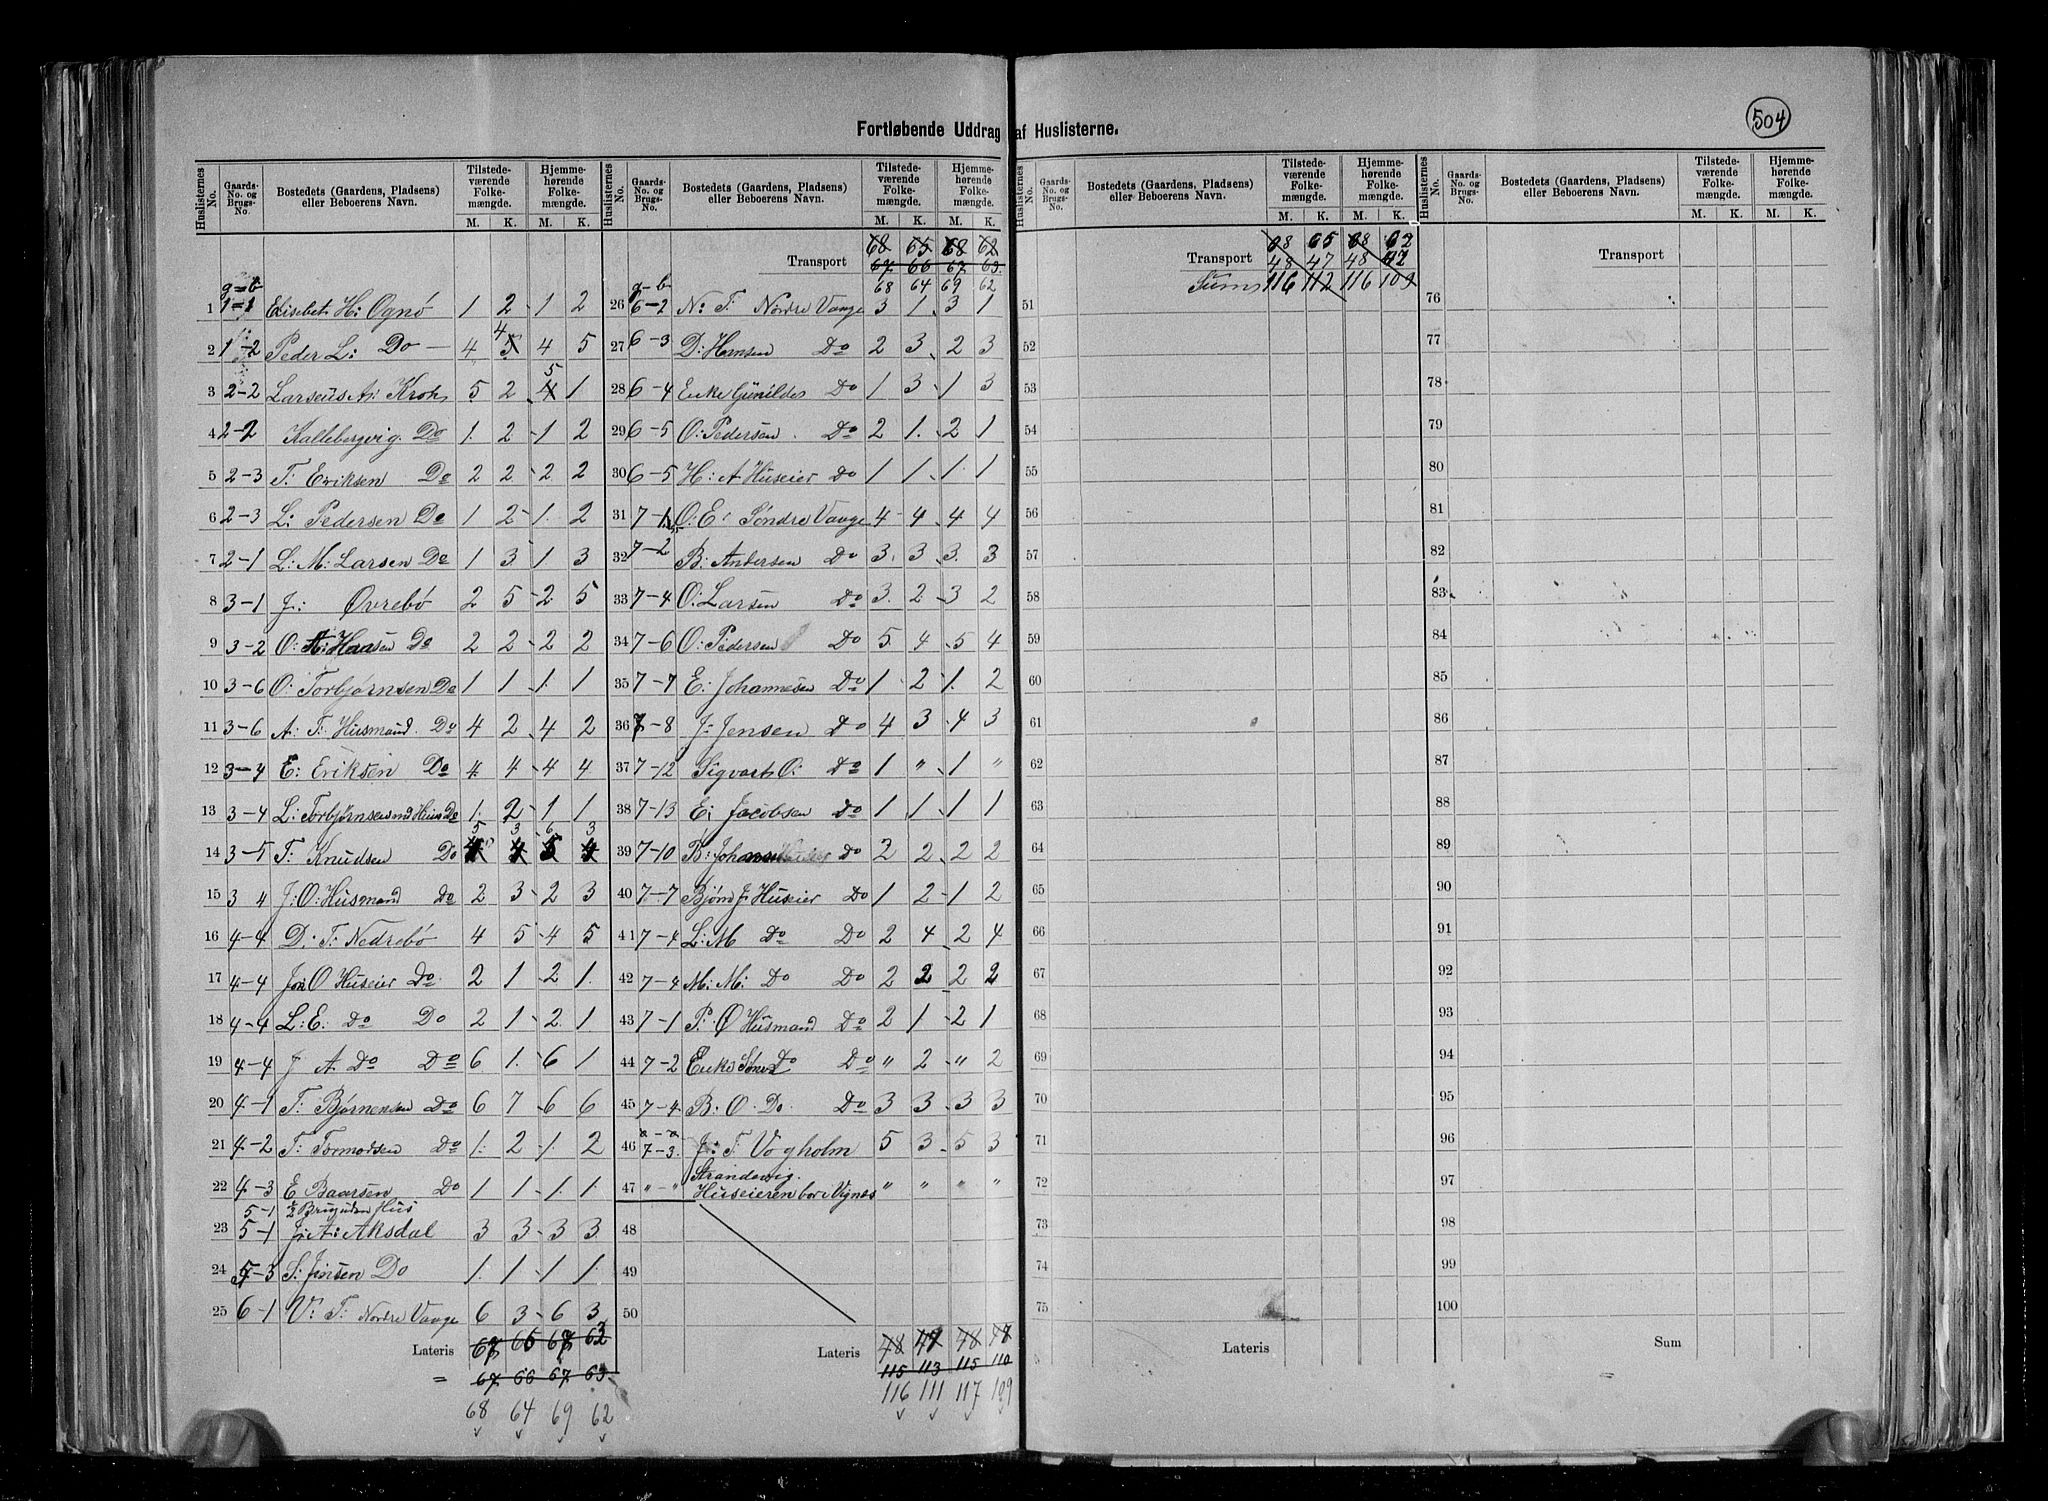 504
Fortløbende Uddrag af Huslisterne.
Huslisternes No. Gaards-No. og Brugs-No. Bostedets (Gaardens, Pladsens) eller Beboerens Navn. Tilstedeværende Folkemængde. M. K. Hjemmehørende Folkemængde. M. K.
g=b
1 1=1 Elisebet H: Ognø 1 2 - 1 2
2 1-2 Peder L: Do - 4 4 4 5
3 2-2 Larseus A: Kroh 5 2 5 1
4 2-2 Kallebergvig. Do 1 2 - 1 2
5 2-3 T: Eriksen Do 2 2 - 2 2
6 2-3 L: Pedersen Do 1 2 - 1 2
7 2-1 L: M: Larsen Do 1 3 1 3
8 3-1 J: Øvrebö 2 5 - 2 5
9 3-2 O: A: Haasen Do 2 2 - 2 2
10 3-6 O: Torbjørnsen Do 1 1 1 1
11 3-6 A: T: Husmand. Do 4 2 - 4 2
12 3-4 E: Eriksen Do 4 4 - 4 4
13 3-4 L: Torbjørnsens Do 1 2 - 1 1
14 3-5 T: Knudsen Do 5 3 - 6 3
15 3 4 J: O: Husmand Do 2 3 - 2 3
16 4-4 D: T: Nedrebö 4 5 - 4 5
17 4-4 Jon O Huseier Do 2 1 - 2 1
18 4-4 L: E: Do Do 2 1 - 2 1
19 4-4 J A Do Do 6 1 - 6 1
20 4-1 T: Bjørnensen Do 6 7 - 6 6
21 4-2 T: Tormodsen Do 1 2 - 1 2
22 4-3 E Baarsen Do 1 1 - 1 1
5-1 Hus
23 5-1 J: A: Aksdal 3 3 - 3 3
24 5-3 S: Jensen Do 1 1 - 1 1
25 6-1 V: T: Nordre Vaage 6 3 - 6 3
Lateris 67 65 68 62
= 67 66 67 63
68 64 69 62
Huslisternes No. Gaards-No. og Brugs-No. Bostedets (Gaardens, Pladsens) eller Beboerens Navn. Tilstedeværende Folkemængde. M. K. Hjemmehørende Folkemængde. M. K.
68 65 68 62
Transport 67 66 67 63
g-b 68 64 69 62
26 6-2 N: T: Nordre Vaage 3 1 3 1
27 6-3 D: Hansen Do 2 3 - 2 3
28 6-4 Enke Gunildes Do 1 3 - 1 3
29 6-5 O: Pedersen Do 2 1 - 2 1
30 6-5 H: A Huseier Do 1 1 1 1
31 7-1 O: E: Søndre Vaage 4 4 - 4 4
32 7-2 B: Andersen Do 3 3 - 3 3
33 7-4 O: Larsen Do 3 2 - 3 2
34 7-6 O: Pedersen Do 5 4 - 5 4
35 7-7 E: Johannesen Do 1 2 - 1 2
36 7-8 J: Jensen Do 4 3 - 4 3
37 7-12 Sigvart O: Do 1 " - 1 "
38 7-13 E: Jacobsen Do 1 1 - 1 1
39 7-10 Do 2 2 - 2 2
40 7-7 Bjørn J: Huseier Do 1 2 - 1 2
41 7-4 L: M Do Do 2 4 - 2 4
42 7-4 M: M: Do Do 2 2 2 2
43 7-1 P: Ø Husmand Do 2 1 - 2 1
44 7-2 Enke Do Do " 2 - " 2
45 7-4 B: O. Do. Do 3 3 - 3 3
46 7-3. J: T. Vogholm 5 3 - 5 3
Strandevig.
47 " - " Huseieren bor i Vignæs " " " "
48
49
50
Lateris 48 47 48 47
115 113 115 110
116 111 117 109
Huslisternes No. Gaards-No. og Brugs-No. Bostedets (Gaardens, Pladsens) eller Beboerens Navn. Tilstedeværende Folkemængde. M. K. Hjemmehørende Folkemængde. M. K.
68 65 68 62
Transport 48 47 48 47
Sum 116 112 116 109
51
52
53
54
55
56
57
58
59
60
61
62
63
64
65
66
67
68
69
70
71
72
73
74
75
Lateris
Huslisternes No. Gaards-No. og Brugs-No. Bostedets (Gaardens, Pladsens) eller Beboerens Navn. Tilstedeværende Folkemængde. M. K. Hjemmehørende Folkemængde. M. K.
Transport
76
77
78
79
80
81
82
83
84
85
86
87
88
89
90
91
92
93
94
95
96
97
98
99
100
Sum